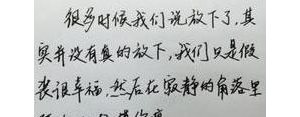 很多时候我们说放下了,其
实并没有真的放下,我们只是假
装很幸福,然后在寂静的角落里